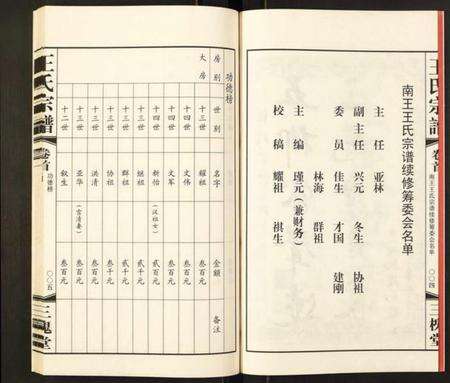 王氏宗譜
卷首
南王王氏宗谱续修筹委会名单
〇〇四
三槐堂
南王王氏宗谱续修筹委会名单
主任 亚林
副主任 兴元 冬生 协祖
委员 佳生 才国 建刚
林海 群祖
主编 瑾元（兼财务）
校稿 耀祖 祺生
功德榜
房别 世别 名字 金额 备注
大房 十三世 耀祖 叁百元
十四世 文伟 叁百元
十四世 文军 叁百元
十四世 新怡 贰百元
十三世 继祖 贰千元
十三世 群祖 贰千元
十三世 协祖 叁千元
十二世 洪清 叁百元
十三世 亚华 叁百元
十二世 钦生 叁百元
王氏宗譜
卷首
功德榜
〇〇五
三槐堂